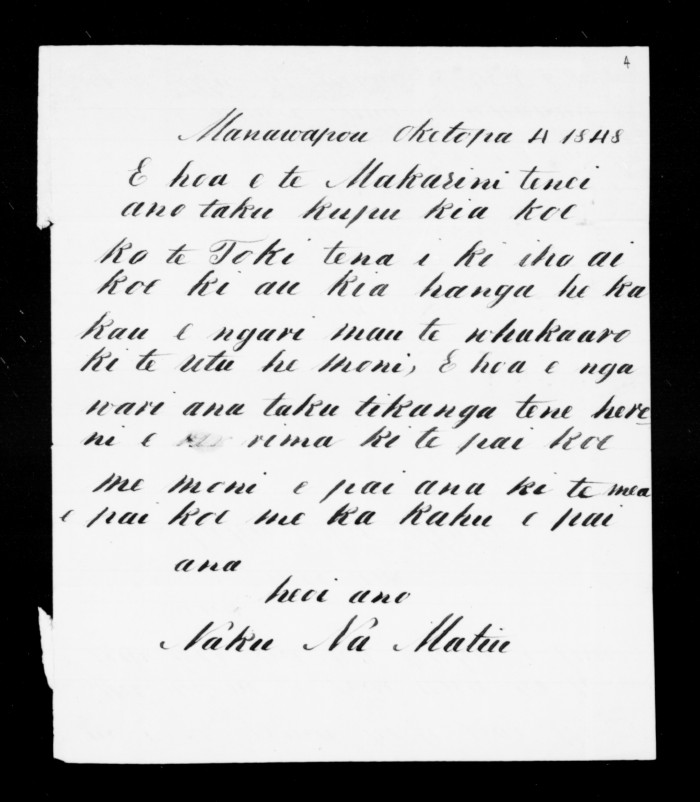 4
Manawapou Oketopa 4 1848
E hoa e te Makarini tenei
ano taku kupu kia koe
ko te Toki tena i ki iho ai
koe ki au kia hanga he ka
kau e ngari mau te whakaaro
ki te utu he moni, E hoa e nga
wari ana taku tikanga tene here
ni e rima ki te pai koe
me moni e pai ana ki te mea
e pai koe me ka kahu e pai
ana
heoi ano
Naku Na Matiu